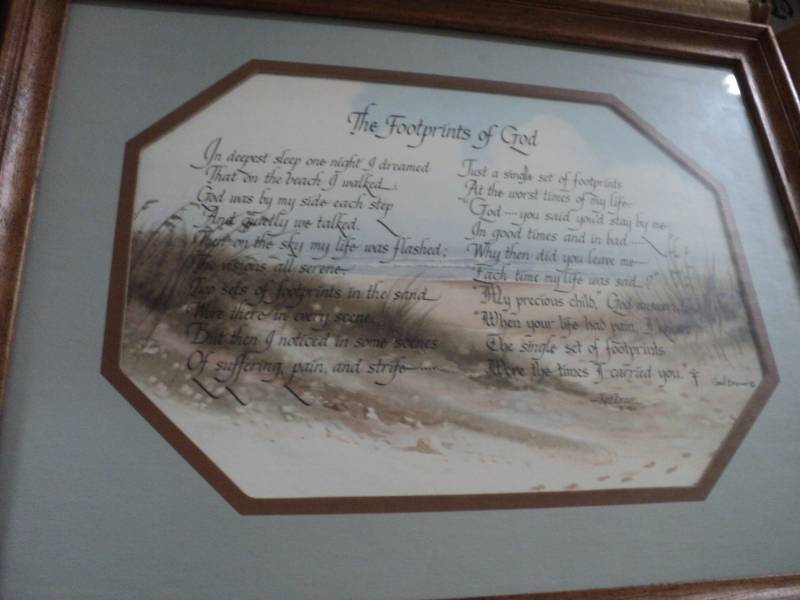 The Footprints of God
In deepest sleep one night I dreamed
That on the beach I walked
God was by my side each step
And quietly we talked.
Then on the sky my life was flashed;
The visions all serene.
Two sets of footprints in the sand
Were there in every scene
But then I noticed in some scenes
Of suffering, pain, and strife ......
Just a single set of footprints
At the worst times of my life.
"God .... you said you'd stay by me
In good times and in bad ....
Why then did you leave me
Each time my life was sad..?"
"My precious child," God answered
"When your life had pain, I
The single set of footprints
Were the times I carried you."